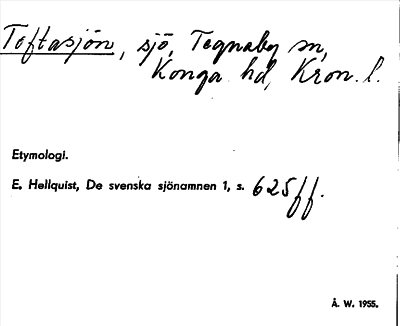 Toftasjön, sjö, Tegnaby sn,
Konga hd, Kron. l.
Etymologi.
E. Hellquist, De svenska sjönamnen 1, s. 625 ff.
Å. W. 1955.